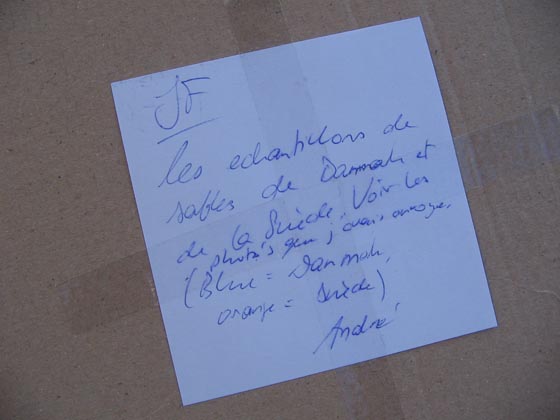 JF
les echantillons de
sables de Danmark et
de la Suède. Voir les
photo's que j'avais envoyé.
(Blue = Danmark,
orange = Suède)
André